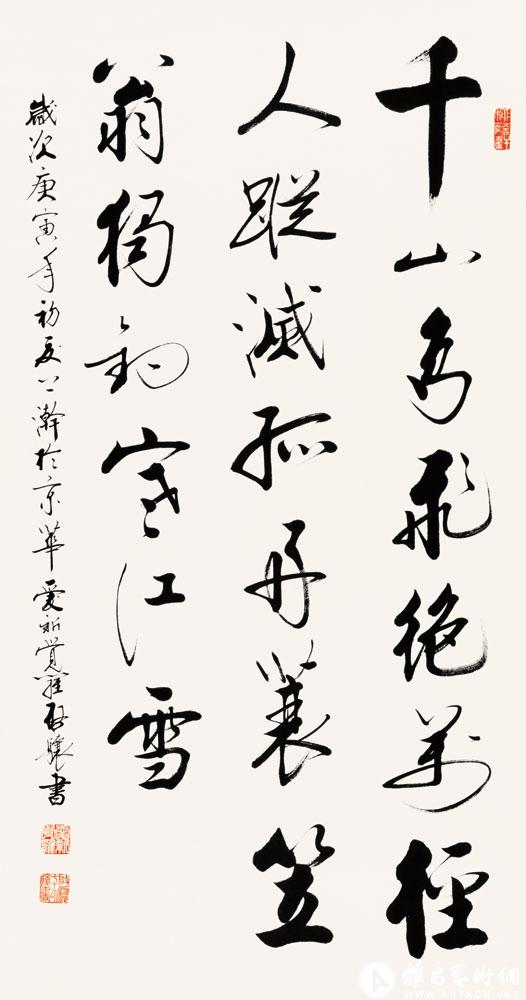 千山鳥飛絕萬徑
人蹤滅孤舟蓑笠
翁獨釣寒江雪
歲次庚寅年初夏上澣於京華愛新覺羅啟驤書
雅昌藝術網
WWW.ARTRON.NET